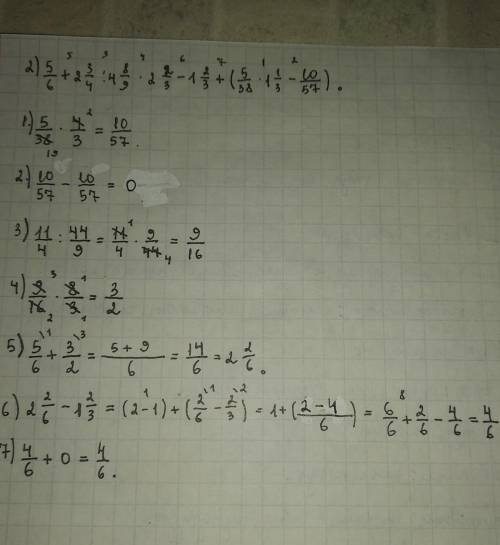 2) 5/6 +⁵ 2 3/4 :³ 4 8/9 ·⁴ 2 2/3 −⁶ 1 2/3 +⁷ (5/38 ·¹ 1 1/3 −² 10/57).
1) 5/38 19 · 4/3 ² = 10/57.
2) 10/57 − 10/57 = 0
3) 11/4 : 44/9 = 11¹/4 · 9/44 4 = 9/16
4) 9³/16 2 · 8¹/3 1 = 3/2
5) 5\¹/6 + 3\³/2 = (5+9)/6 = 14/6 = 2 2/6.
6) 2 2/6 − 1 2/3 = (2−1) + (2\¹/6 − 2\²/3) = 1+((2−4)/6) = 6/6 + 2/6 − 4/6 = 4/6
7) 4/6 + 0 = 4/6.